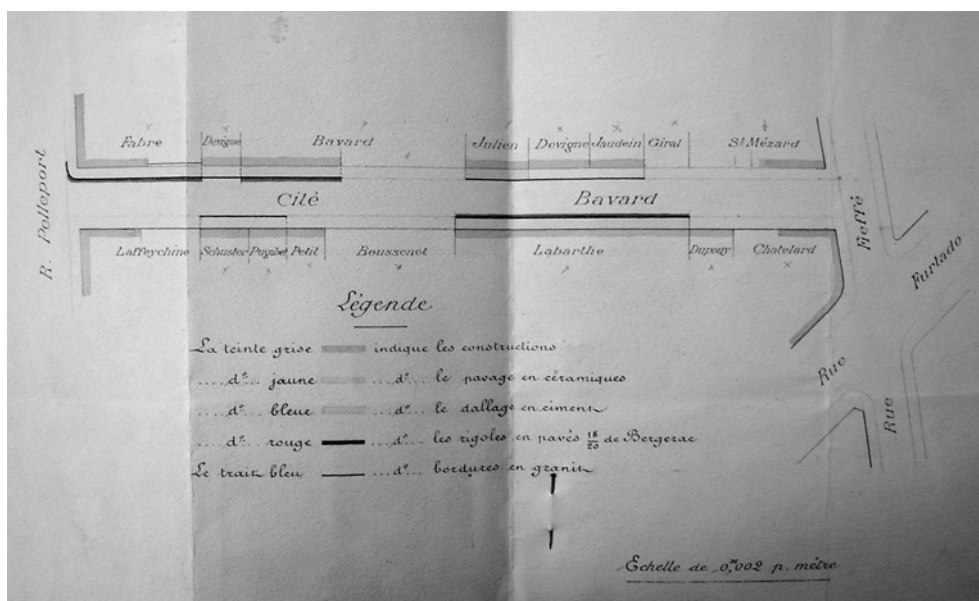 Fabre Devigne Bavard Julien Devigne Jaudein Giral St Mézard
R. Pelleport
Cité Bavard
Rue Fieffé
Rue Furtado
Laffeychine Schuster Pugibet Petit Boussenot Labarthe Dupouy Chatelard
Légende
La teinte grise indique les constructions
..... d°... jaune ...d°... le pavage en céramiques
..... d°... bleue ...d°... le dallage en ciment
..... d°... rouge ...d°... les rigoles en pavés 18/20 de Bergerac
Le trait bleu ...d°... bordures en granit
Echelle de 0,m002 p. mètre